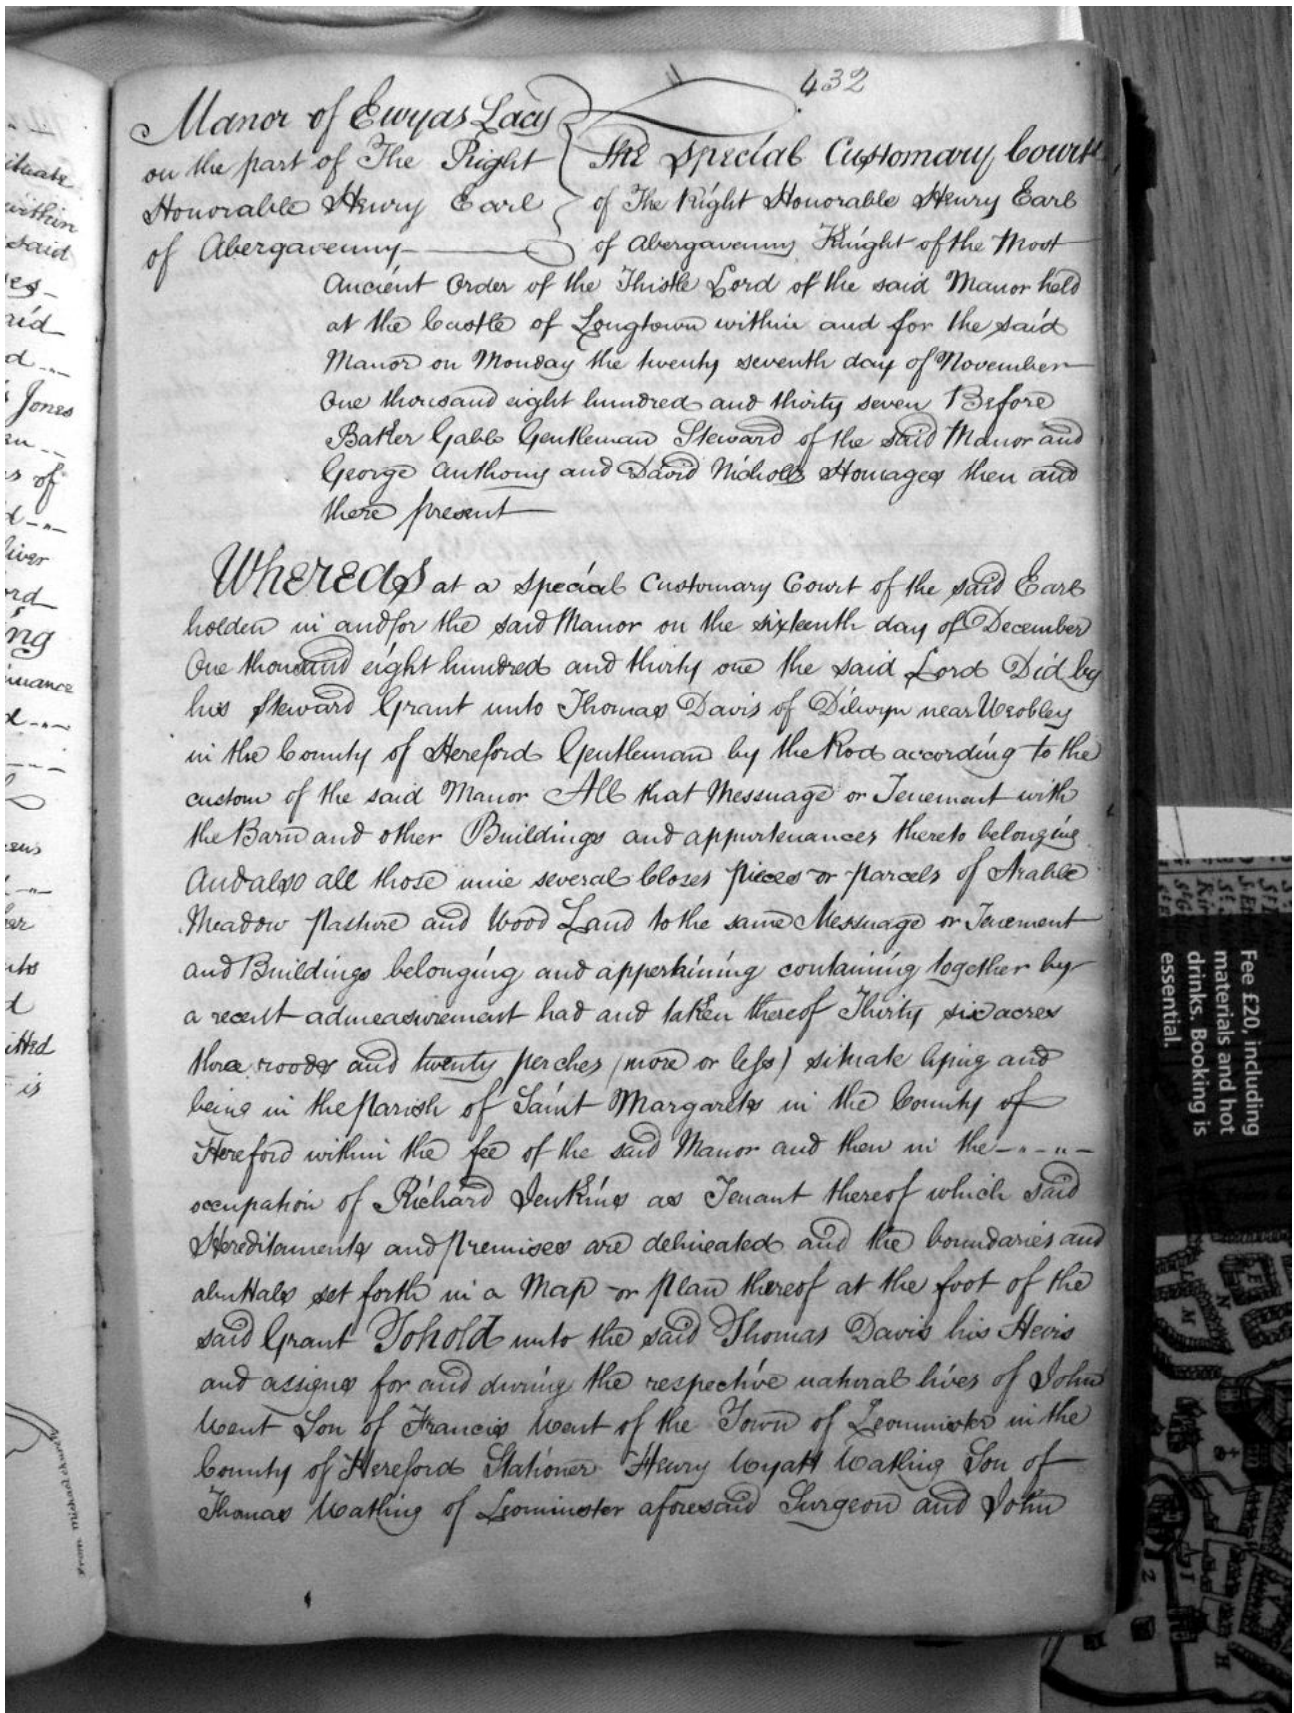 432
Manor of Ewyas Lacy
on the part of The Right
Honorable Henry Earl
of Abergavenny
The Special Customary Court
of The Right Honorable Henry Earl
of Abergavenny Knight of the Most
Ancient Order of the Thistle Lord of the said Manor held
at the Castle of Longtown within and for the said
Manor on Monday the twenty seventh day of November
One thousand eight hundred and thirty seven Before
Baker Gabb Gentleman Steward of the said Manor and
George Anthony and David Nicholls Homages then and
there present
Whereas at a Special Customary Court of the said Earl
holden in and for the said Manor on the sixteenth day of December
One thousand eight hundred and thirty one the said Lord Did by
his Steward Grant unto Thomas Davis of Dilwyn near Weobley
in the County of Hereford Gentleman by the Rod according to the
custom of the said Manor All that Messuage or Tenement with
the Barn and other Buildings and appurtenances thereto belonging
And also all those nine several Closes pieces or parcels of Arable
Meadow Pasture and Wood Land to the same Messuage or Tenement
and Buildings belonging and appertaining containing together by
a recent admeasurement had and taken thereof Thirty six acres
three roods and twenty perches (more or less) situate lying and
being in the Parish of Saint Margarets in the County of
Hereford within the fee of the said Manor and then in the
occupation of Richard Jenkins as Tenant thereof which said
Hereditaments and premises are delineated and the boundaries and
abuttals set forth in a Map or plan thereof at the foot of the
said Grant To hold unto the said Thomas Davis his Heirs
and assigns for and during the respective natural lives of John
Went Son of Francis Went of the Town of Leominster in the
County of Hereford Stationer Henry Wyatt Watling Son of
Thomas Watling of Leominster aforesaid Surgeon and John
situate
within
said
Jones
of
is
From Michaelchurch
Fee £20, including
materials and hot
drinks. Booking is
essential.